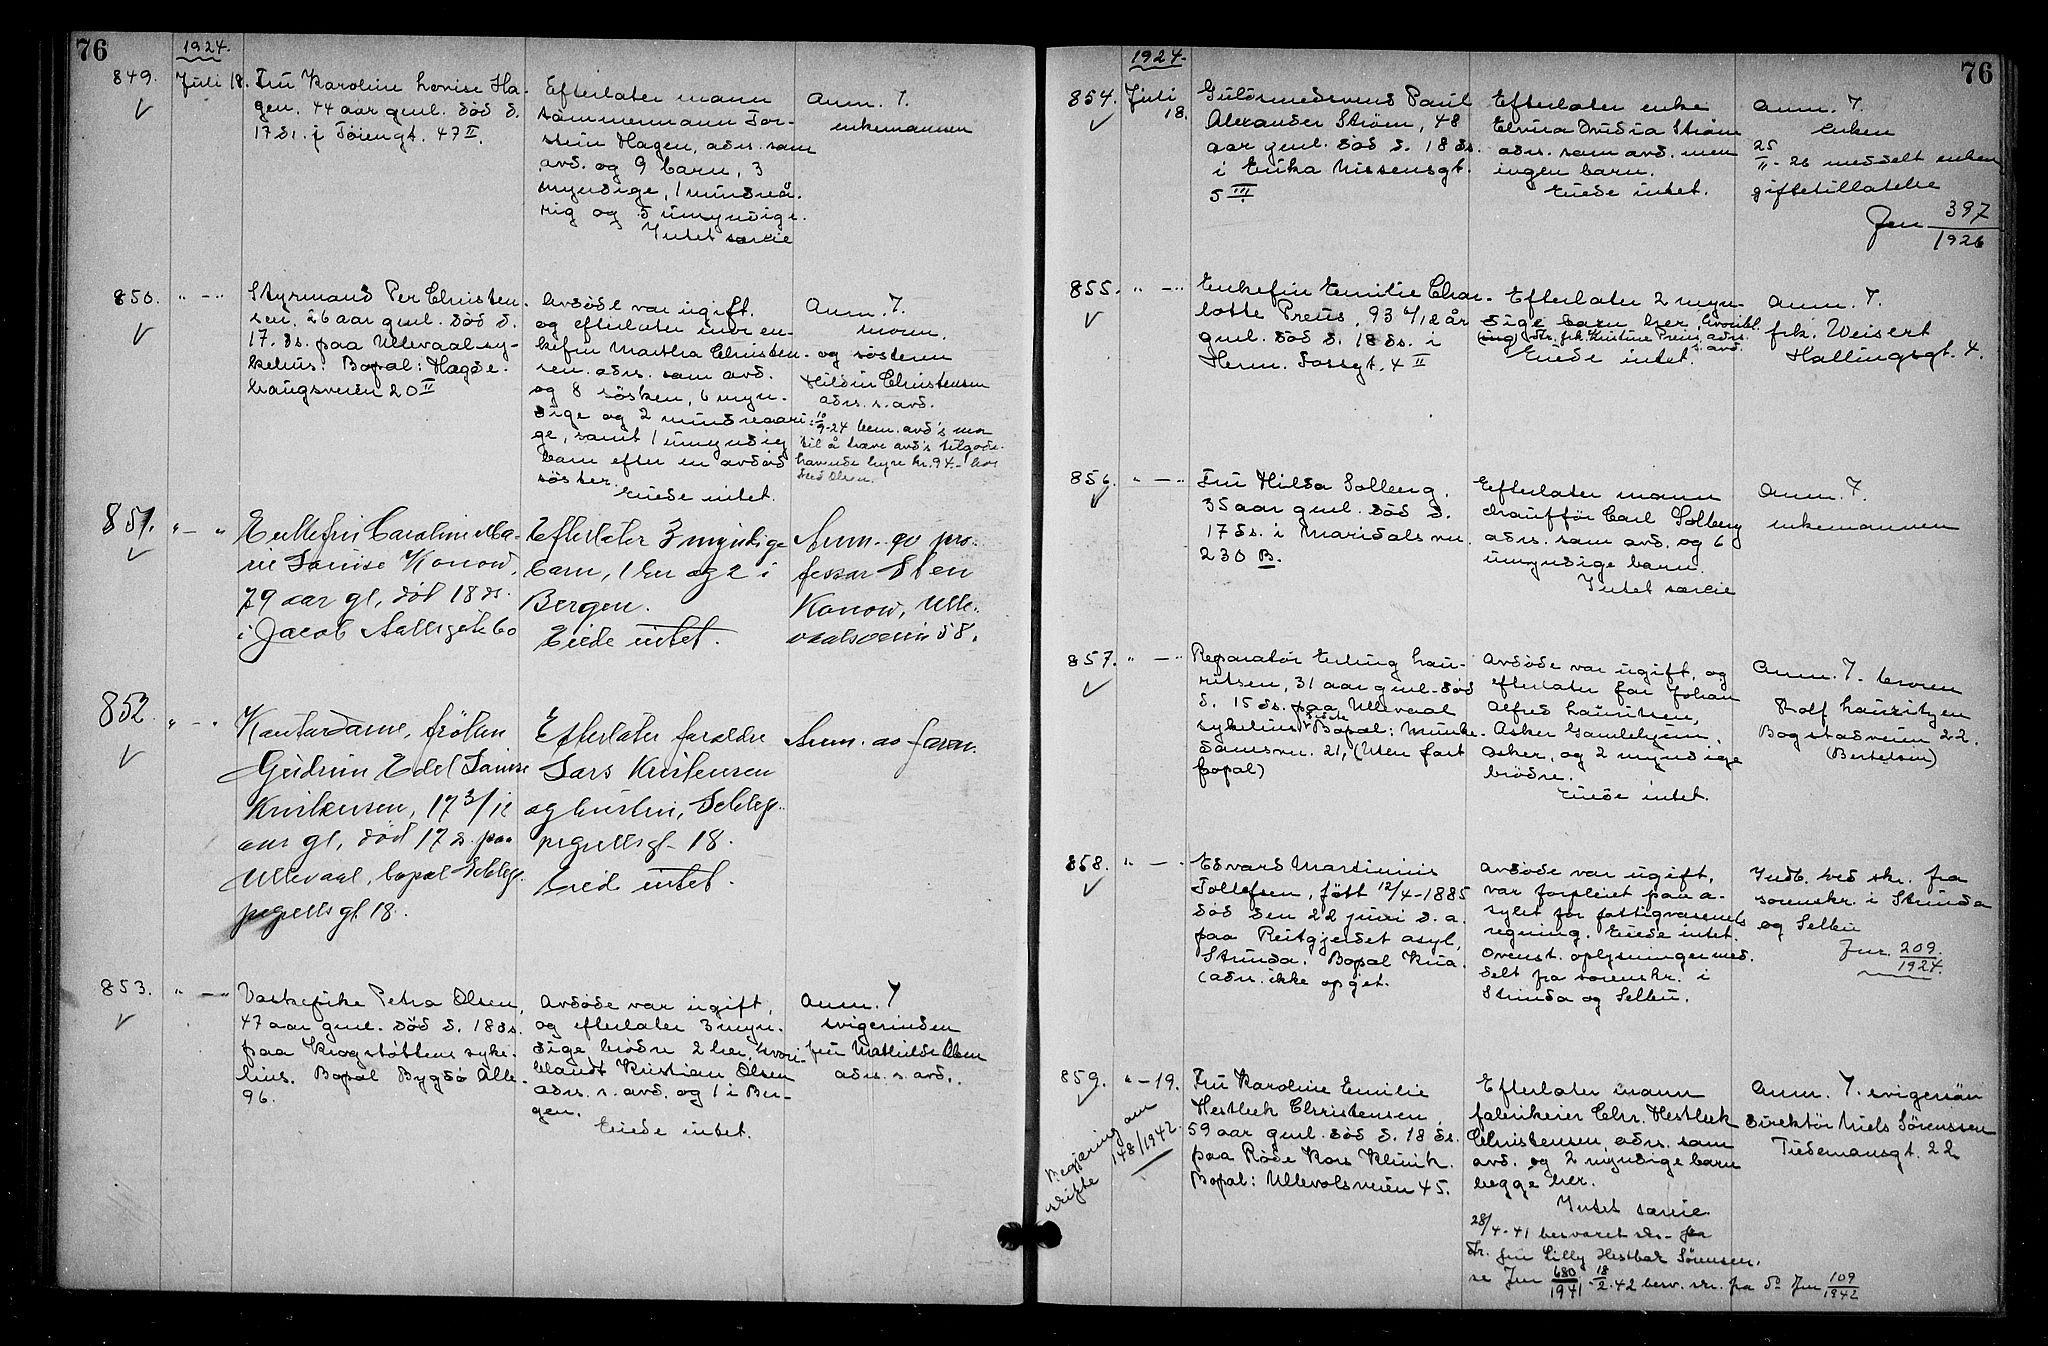 76
1924.
849.
Juli 18.
Fru Karoline Lovise Ha-
gen, 44 aar gml. död d.
17 ds. i Töiengt. 47 II.
Efterlater mann
tömmermann Tor-
stein Hagen, adrs. som
avd. og 9 barn, 3
myndige, 1 mindreå-
rig og 5 umyndige.
Intet særeie
Anm. 7.
enkemannen
850.
" — "
Styrmand Per Christen-
sen, 26 aar gml. död d.
17. ds. paa Ullevaal sy-
kehus. Bopæl: Hegde-
haugsveien 20 II
Avdöde var ugift.
og efterlater mor en-
kefru Martha Christen-
sen. adrs. som avd.
og 8 sösken, 6 myn-
dige og 2 mindreaari-
ge, samt 1 umyndig
barn efter en avdöd
söster.
Eiede intet.
Anm. 7.
moren.
og søsteren
Christensen
adrs. s. avd.
10/9-24 bem. avd's mor
til å hæve avd's tilgode-
havende hyre kr. 94.- hos
Fred Olsen.
851.
" — "
Enkefru Caroline Ma-
rie Louise Konow,
79 aar gl, död 18 ds.
i Jacob Aallsgate 60
Efterlater 3 myndige
barn, 1 her og 2 i
Bergen.
Eiede intet.
Anm. av pro-
fessor Sten
Konow, Ulle-
vaalsveien 58.
852.
" — "
Kontordame, fröken
Gudrun Edel Louise
Kristensen, 17 3/12
aar gl, död 17 ds. paa
Ullevaal, bopæl Schlep-
pegrellsgt 18.
Efterlater forældre
Lars Kristensen
og hustru, Schlep-
pegrellsgt 18.
Eied intet.
Anm. av faren.
853.
" — "
Vaskepike Petra Olsen,
47 aar gml. död d. 18 ds.
paa Krogstöttens syke-
hus. Bopæl Bygdö Alle
96.
Avdöde var ugift,
og efterlater 3 myn-
dige brödre 2 her, hvori-
blandt Kristian Olsen
adrs. s. avd. og 1 i Ber-
gen.
Eiede intet.
Anm. 7
svigerinden
fru Mathilde Olsen
adrs. s. avd.
76
1924.
854.
Juli
18.
Guldsmedsvend Paul
Alexander Ström, 48
aar gml. död d. 18 ds.
i Erika Nissensgt.
5 III.
Efterlater enke
Elvira Ström
adrs. som avd. men
ingen barn.
Eiede intet.
Anm. 7.
enken
25
II - 26 meddelt enken
giftetillatelse
Jnr 397
1926
855.
" — "
Enkefru Emilie Char-
lotte Preus, 93 6/12 år
gml. död d. 18 ds. i
Herm. Fossgt. 4 II
Efterlater 2 myn-
dige barn her, hvoribl.
frk. Kristine Preus, adrs.
s. avd.
Eiede intet.
Anm. 7.
frk. Weisert
Hallingsgt. 4.
856.
" — "
Fru Hilda Solberg,
35 aar gml. död d.
17 ds. i Maridalsvn.
230 B.
Efterlater mann
chaufför Carl Solberg
adrs. som avd. og 6
umyndige barn.
Intet særeie
Anm. 7.
enkemannen
857.
" — "
Reparatör Erling Lau-
ritsen, 31 aar gml. död
d. 15 ds. paa Ullevaal
sykehus. Sidste Bopæl: Munke-
damsvn. 21, (Uten fast
bopæl)
Avdöde var ugift, og
efterlater far Johan
Alfred Lauritsen,
Asker Gamlehjem,
Asker, og 2 myndige
brödre.
Eiede intet.
Anm. 7. broren
Rolf Lauritzen
Bogstadveien 22.
(Bertelsen)
858.
" — "
Edvard Martinius
Tollefsen, född 12/4-1885
död den 22 juni d. a.
paa Reitgjerdet asyl,
Strinda. Bopæl Kr.a.
(adr. ikke opget.
Avdöde var ugift,
var forpleiet paa a-
sylet for fattigvæsenets
regning. Eiede intet.
Ovenst. oplysninger med-
delt fra sorenskr. i
Strinda og Selbu.
Indb. ved skr. fra
sorenskr. i Strinda
og Selbu
Jnr. 209.
1924.
859.
" — 19.
Begjæring om
skifte 148/1942.
Fru Karoline Emilie
Hestbek Christensen,
59 aar gml. död d. 18 ds.
paa Röde Kors Klinik.
Bopæl: Ullevolsveien 45.
Efterlater mann
fabrikeier Chr. Hestbek
Christensen adrs. som
avd. og 2 myndige barn
begge her.
Intet særeie
28/4-41 besvaret skr. fra
fru Lilly Hestbek Sörensen.
se Jnr 680/1941. 18/2.42 besv. skr. fra do Jnr 109/1942
Anm. 7. svigersön
direktör Niels Sörenssen
Tidemansgt. 22